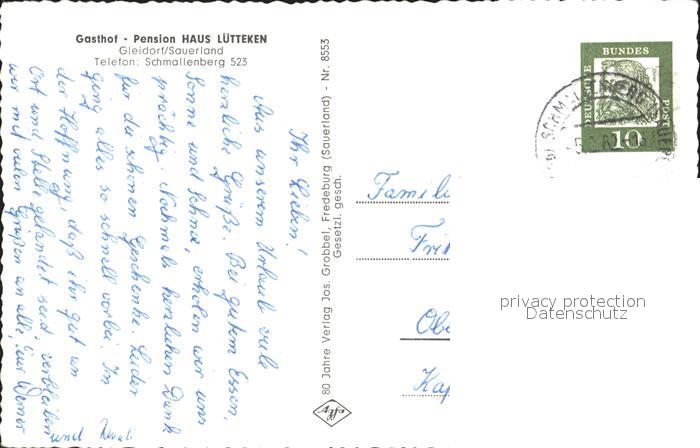 Gasthof - Pension HAUS LÜTTEKEN
Gleidorf/Sauerland
Telefon: Schmallenberg 523
Ihr Lieben!
Aus unserem Urlaub viele
herzliche Grüße. Bei gutem Essen,
Sonne und Schnee, erholen wir uns
prächtig. Nochmals herzlichen Dank
für die schönen Geschenke. Leider
ging alles so schnell vorbei. In
der Hoffnung, daß ihr gut an
Ort und Stelle gelandet seid, verbleiben
wir mit vielen Grüßen an alle, Eur Werner
und
80 Jahre Verlag Jos. Grobbel, Fredeburg (Sauerland) - Nr. 8553
Gesetzl. gesch.
Agfa
DEUTSCHE
BUNDES
POST
10
Famili
Obe
privacy protection
Datenschutz